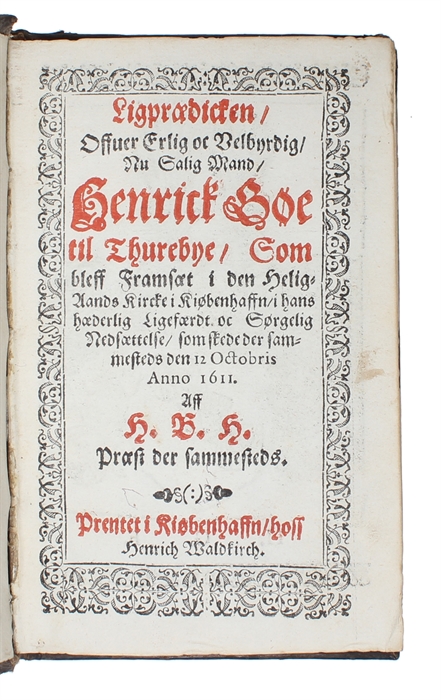 Ligprædicken/
Offuer Erlig oc Velbyrdig/
Nu Salig Mand/
Henrick Gøe
til Thurebye/ Som
bleff Framsæt i den Helig-
Aands Kircke i Kiøbenhaffn/ i hans
hæderlig Ligefærdt. oc Sørgelig
Nedsættelse/ som skede der sam-
mesteds den 12 Octobris
Anno 1611.
Aff
H. B. H.
Præst der sammesteds.
(:)
Prentet i Kiøbenhaffn/ hoss
Henrich Waldkirch.